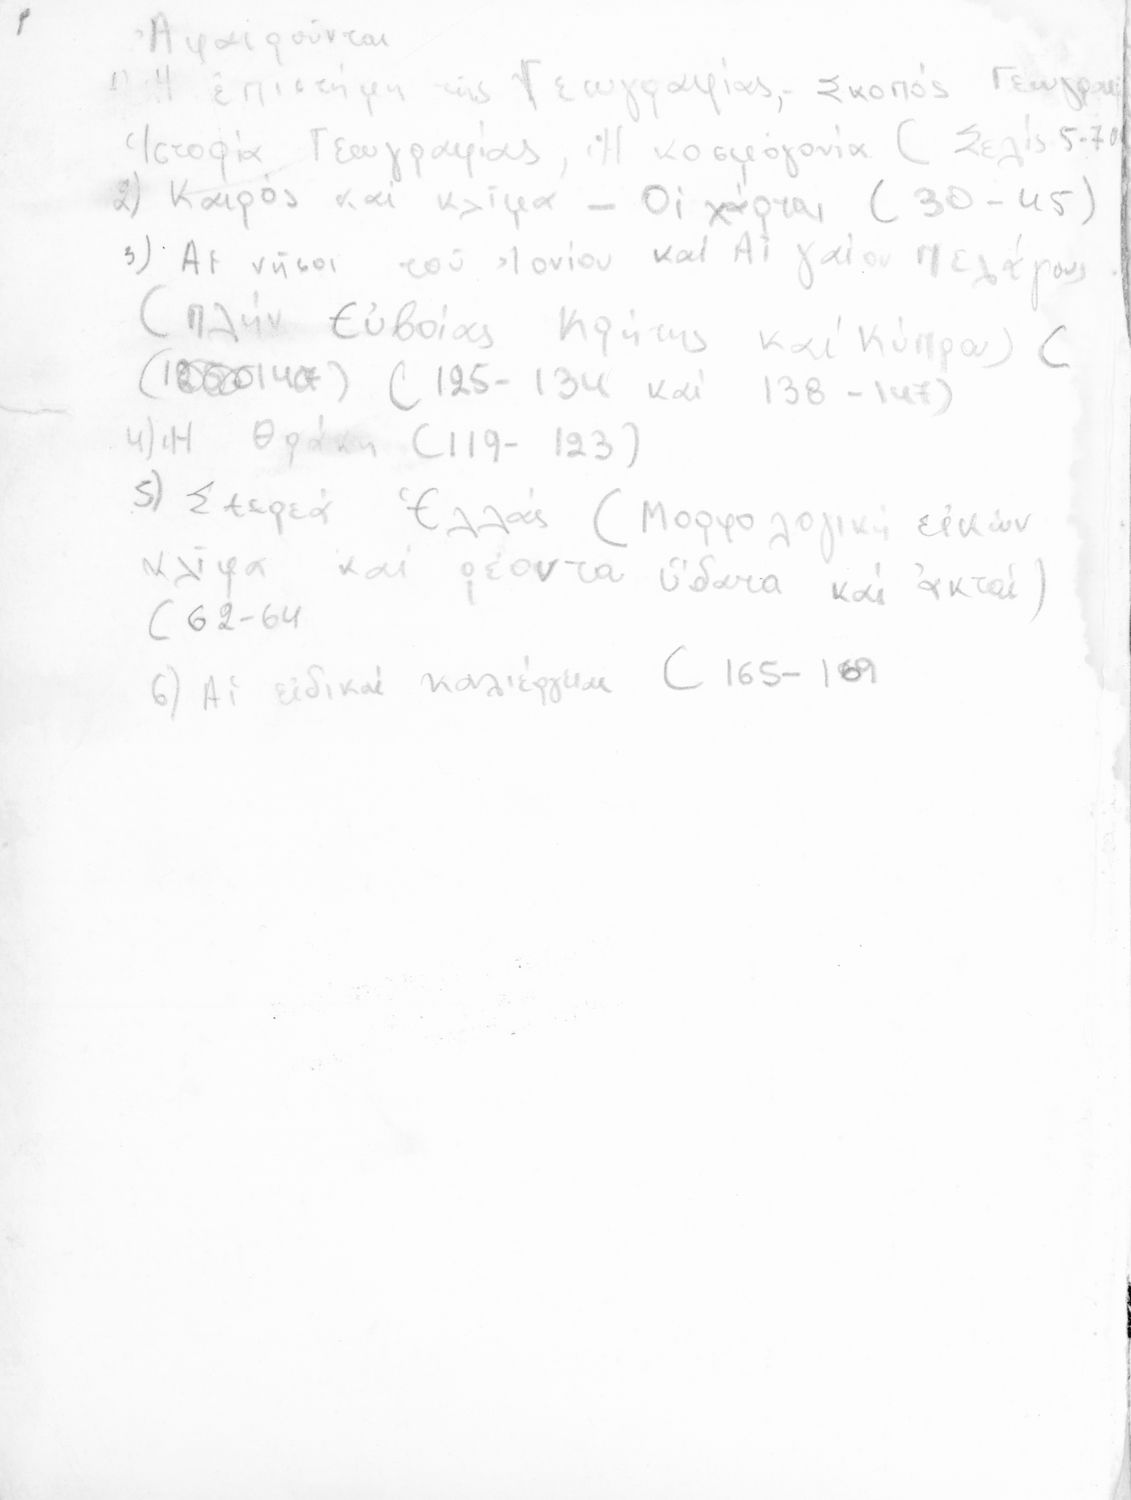 Ἀφαιροῦνται
1) Ἡ ἐπιστήμη τῆς Γεωγραφίας,- Σκοπός Γεωγραφ
Ἱστορία Γεωγραφίας, Ἡ κοσμογονία ( Σελίς 5-70
2) Καιρός καί κλῖμα - Οἱ χάρται (30-45)
3) Αἱ νῆσοι τοῦ Ἰονίου καί Αἰγαίου Πελάγους
(πλήν Εὐβοίας Κρήτης καί Κύπρου) (
(125-134 καί 138-147)
4) Ἡ Θράκη (119-123)
5) Στερεά Ἑλλάς (Μορφολογική εἰκών
κλῖμα καί ρέοντα ὕδατα καί ἀκταί)
(62-64
6) Αἱ εἰδικαί καλιέργειαι (165-169